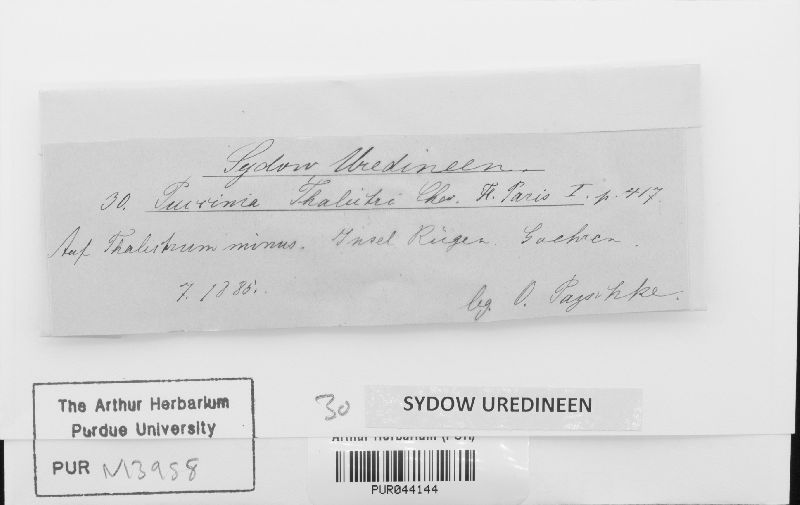 Sydow, Uredineen.
30. Puccinia Thalictri Chev. Fl. Paris I. p. 417.
Auf Thalictrum minus. Insel Rügen. Goehren.
7. 1885.
leg. O. Pazschke.
30 SYDOW UREDINEEN
The Arthur Herbarium
Purdue University
PUR N13958
Arthur Herbarium (PUR)
PUR044144